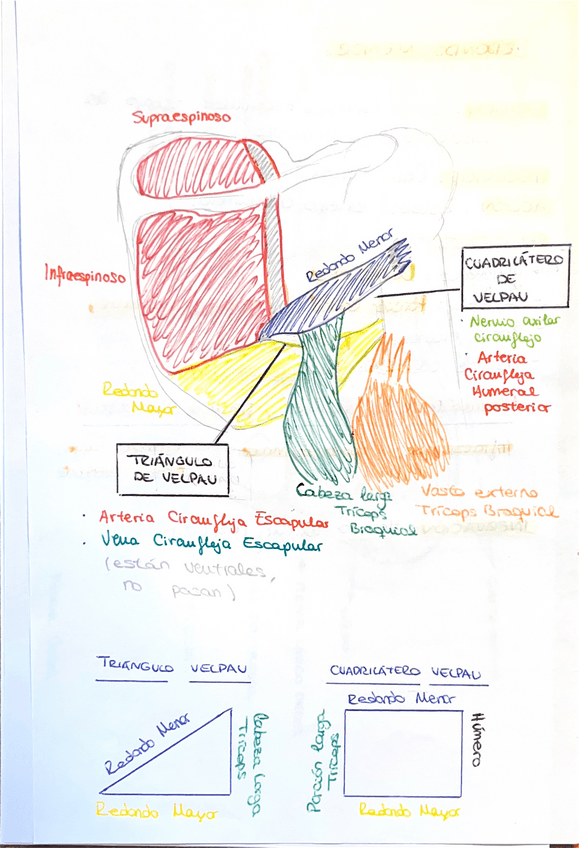 Supraespinoso
Redondo Menor
CUADRILÁTERO
DE
VELPAU
Infraespinoso
· Nervio axilar
circunflejo
· Arteria
Circunfleja
Humeral
posterior
Redondo
Mayor
TRIÁNGULO
DE VELPAU
Cabeza larga
Tríceps
Braquial
Vasto externo
Tríceps Braquial
· Arteria Circunfleja Escapular
· Vena Circunfleja Escapular
(están ventrales,
no pasan)
TRIÁNGULO VELPAU
CUADRILÁTERO VELPAU
Redondo Menor
Cabeza larga
Tríceps
Redondo Mayor
Redondo Menor
Porción larga
Tríceps
Húmero
Redondo Mayor